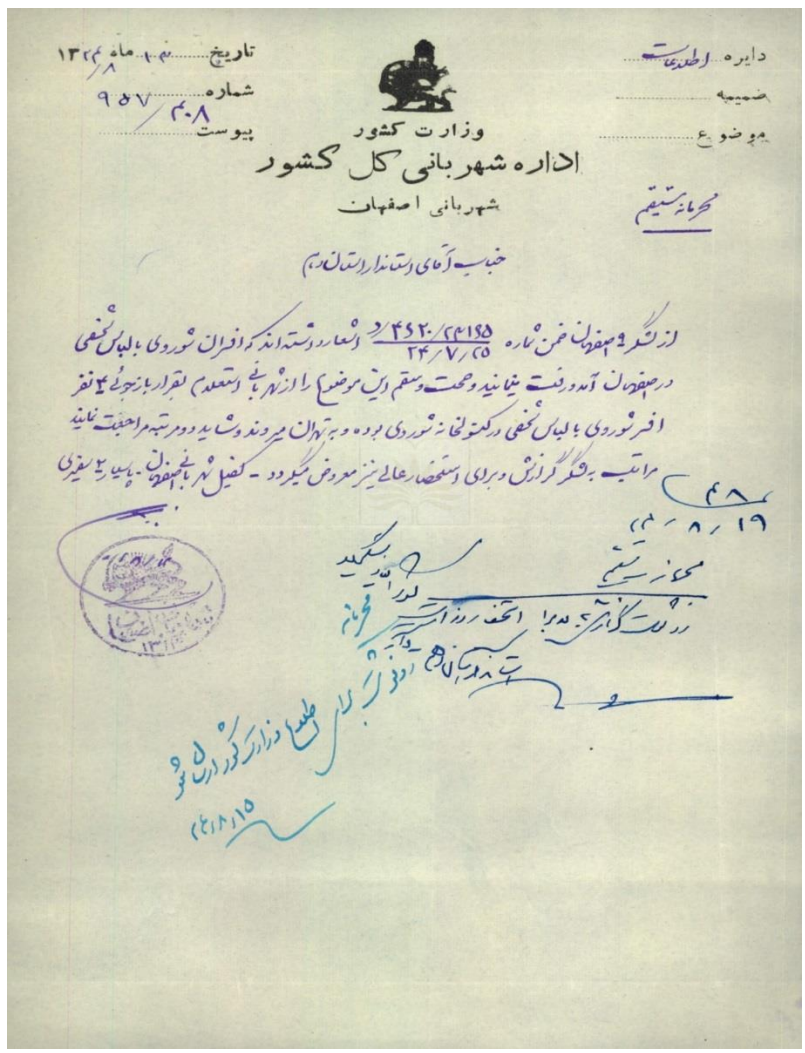 دایره اطلاعات
ضمیمه
موضوع
تاریخ ۱۰ ماه ۸ ۱۳۲۴
شماره ۹۵۷/۴۰۸
پیوست
وزارت کشور
اداره شهربانی کل کشور
شهربانی اصفهان
محرمانه مستقیم
جناب آقای استاندار استان دهم
از لشگر ۹ اصفهان ضمن شماره ۲۴۱۶۵/۴۶۲۰/د ۲۴/۷/۲۵ اشعار داشته‌اند که افسران شوروی با لباس شخصی
در اصفهان آمد و رفت مینمایند و صحت و سقم این موضوع را از شهربانی استعلام بقرار بازجوئی ۴ نفر
افسر شوروی با لباس شخصی در کنسولخانه شوروی بوده و به تهران میروند و شاید دو مرتبه مراجعت نمایند
مراتب به لشگر گزارش و برای استحضار عالی نیز معروض میگردد - کفیل شهربانی اصفهان - پاسیار ۲
۴۰۸
۲۴/۸/۱۹
محرمانه مستقیم
رونوشت گزارش
استاندار استان دهم
محرمانه
رونوشت برای اطلاع وزارت کشور ارسال شود
۲۴/۸/۱۵